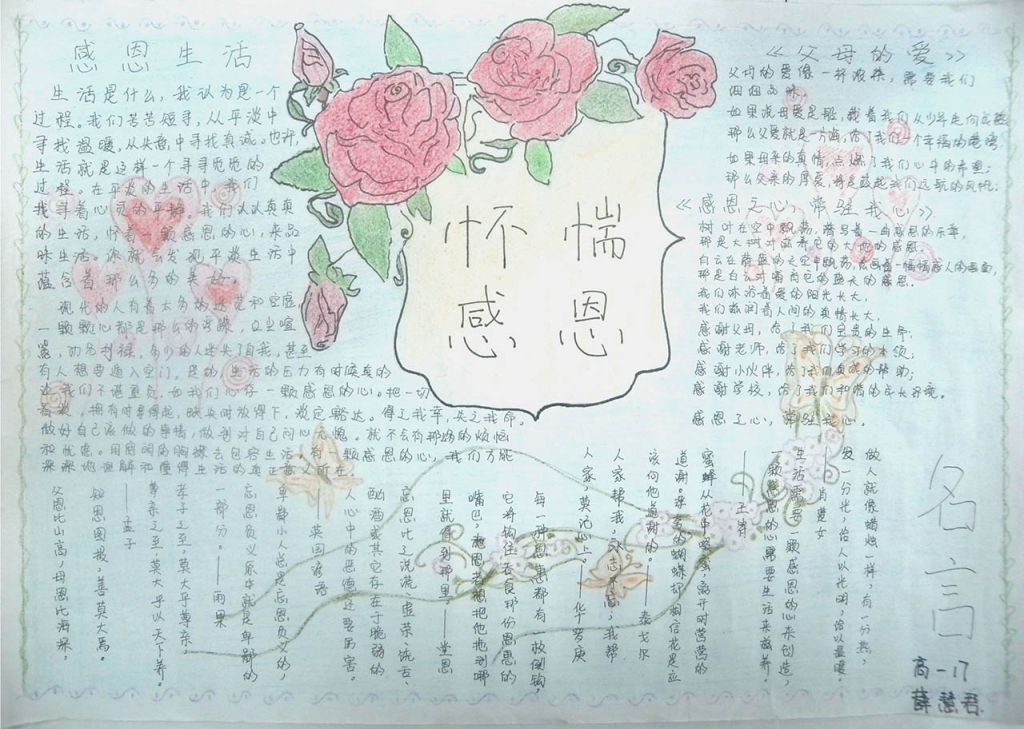 感恩生活
生活是什么,我认为是一个
过程。我们苦苦追寻,从平淡中
寻找温暖,从失落中寻找真诚。也许,
生活就是这样一个寻寻觅觅的
过程。在平淡的生活中,我们
找寻着心灵的平静。我们认认真真
的生活,怀着一颗感恩的心,来品
味生活。你就会发现平淡生活中
蕴含着那么多的美好。
现代的人有着太多的迷茫和空虚
一颗颗心都是那么的浮躁,
嚣,功名利禄,多少的人迷失了自我,甚至
有人想要遁入空门。是的,生活的压力有时候真的
让我们不堪重负。如我们心存一颗感恩的心,把一切
看淡,拥有时看得起,缺失时放得下,淡定豁达。得之我幸,失之我命。
做好自己该做的事情,做到对自己问心无愧。就不会有那么多的烦恼
和忧虑。用宽阔的胸襟去包容生活,有一颗感恩的心,我们方能
深深地理解和懂得生活的真正意义所在。
怀惴
感恩
《父母的爱》
父母的爱像一杯浓茶,需要我们
细细品味。
如果说母爱是船,载着我们从少年走向成熟
那么父爱就是一片海,给了我们一个幸福的港湾
如果母亲的真情,点燃了我们心中的希望;
那么父亲的厚爱,将是鼓起我们远航的风帆。
《感恩之心,常驻我心》
树叶在空中飘荡,谱写着一曲感恩的乐章,
那是大树对滋养它的大地的感恩。
白云在蔚蓝的天空中飘荡,绘画着一幅幅感人的画面,
那是白云对哺育它的蓝天的感恩。
我们沐浴着爱的阳光长大,
我们滋润着人间的真情长大,
感谢父母,给了我们宝贵的生命,
感谢老师,给了我们学习的本领;
感谢小伙伴,给了我们真诚的帮助;
感谢学校,给了我们和谐的成长环境。
感恩之心,常驻我心。
名言
做人就像蜡烛一样,有一分热,
发一分光,给人以光明,给以温暖。
——肖楚女
生活需要一颗感恩的心来创造,
一颗感恩的心需要生活来滋养。
——王符
蜜蜂从花中啜蜜,离开时营营的
道谢。浮夸的蝴蝶却相信花是应
该向他道谢的。——泰戈尔
人家帮我,永志不忘,我帮
人家,莫记心上。——华罗庚
每一种恩惠都有一枚倒钩,
它将钩住吞食那份恩惠的
嘴巴,施恩者想把他拖到哪
里就得到那里。——堂恩
忘恩比之说谎、虚荣、饶舌、
酗酒或其它存在于脆弱的
人心中的恶德还要厉害。
——英国谚语
卑鄙小人总是忘恩负义的,
忘恩负义原本就是卑鄙的
一部分。——雨果
孝子之至,莫大乎尊亲,
尊亲之至,莫大乎以天下养。
——孟子
知恩图报,善莫大焉。
父恩比山高,母恩比海深。
高一17
薛慧君